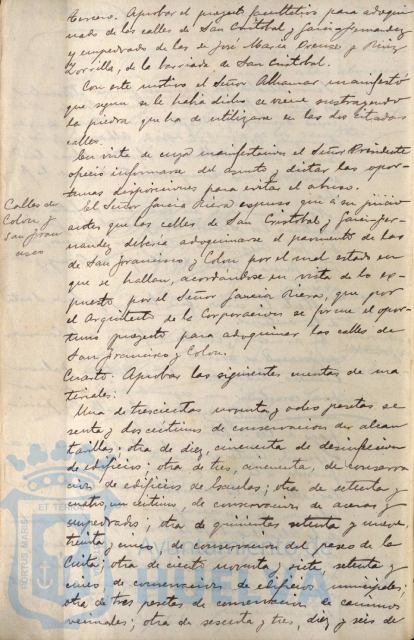 tercero. Aprobar el proyecto facultativo para adoqui-
nado de las calles de San Cristobal y García Fernandez
y empedrado de las de José María Orense y Ruiz
Zorrilla, de la barriada de San Cristobal.
Con este motivo el Señor Alhamar manifestó
que segun se le habia dicho se viene sustrayendo
la piedra que ha de utilizarse en las dos citadas
calles.
En vista de cuya manifestacion el Señor Presidente
ofreció informarse del asunto y dictar las opor-
tunas disposiciones para evitar el abuso.
Calles de
Colon y
San Fran
cisco
El Señor García Riera expuso que á su juicio
antes que las calles de San Cristobal y García Fer-
nandez, deberia adoquinarse el pavimento de las
de San Francisco y Colon por el mal estado en
que se hallan, acordándose en vista de lo ex-
puesto por el Señor García Riera, que por
el Arquitecto de la Corporacion se forme el opor-
tuno proyecto para adoquinar las calles de
San Francisco y Colon.
Cuarto. Aprobar las siguientes cuentas de ma-
teriales:
Una de trescientas noventa y ocho pesetas se
senta y dos céntimos de conservacion de alcan
tarillas; otra de diez, cincuenta de desinfeccion
de edificios; otra de tres, cincuenta, de conserva
cion de edificios de Escuelas; otra de setenta y
cuatro, un céntimo, de conservacion de aceras y
empedrados, otra de quinientas setenta y nueve
treinta y cinco, de conservacion del paseo de la
Cinta; otra de ciento noventa y siete, setenta y
cinco de conservacion de edificios municipales;
otra de tres pesetas de conservacion de caminos
vecinales; otra de sesenta y tres, diez y seis de
PORTUS MARIS
ET TE
Ayuntamiento de
HUELVA